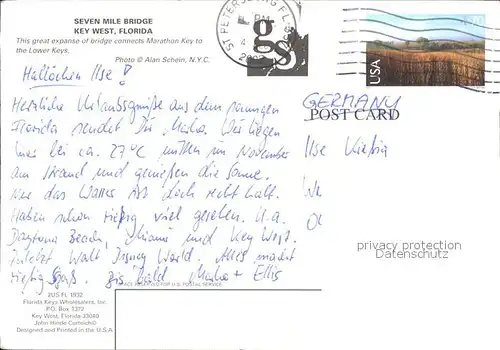 SEVEN MILE BRIDGE
KEY WEST, FLORIDA
This great expanse of bridge connects Marathon Key to
the Lower Keys.
Photo © Alan Schein, N.Y.C.
ST PETERSBURG FL
PM
gs
USA
Hallöchen Ilse!
Herzliche Urlaubsgrüße aus dem sonnigen
Florida sendet Dir Marko. Wir liegen
hier bei ca. 27°C mitten im November
am Strand und genießen die Sonne.
Nur das Wasser ist doch recht kalt.
Haben schon riesig viel gesehen. U.a.
Daytona Beach, Miami und Key West.
Zuletzt Walt Disney World. Alles macht
riesig Spaß. Bis bald Marko + Ellis
GERMANY
POST CARD
Ilse
privacy protection
Datenschutz
SPACE RESERVED FOR U.S. POSTAL SERVICE
2US FL 1932
Florida Keys Wholesalers, Inc.
P.O. Box 1372
Key West, Florida 33040
John Hinde Curteich©
Designed and Printed in the U.S.A.